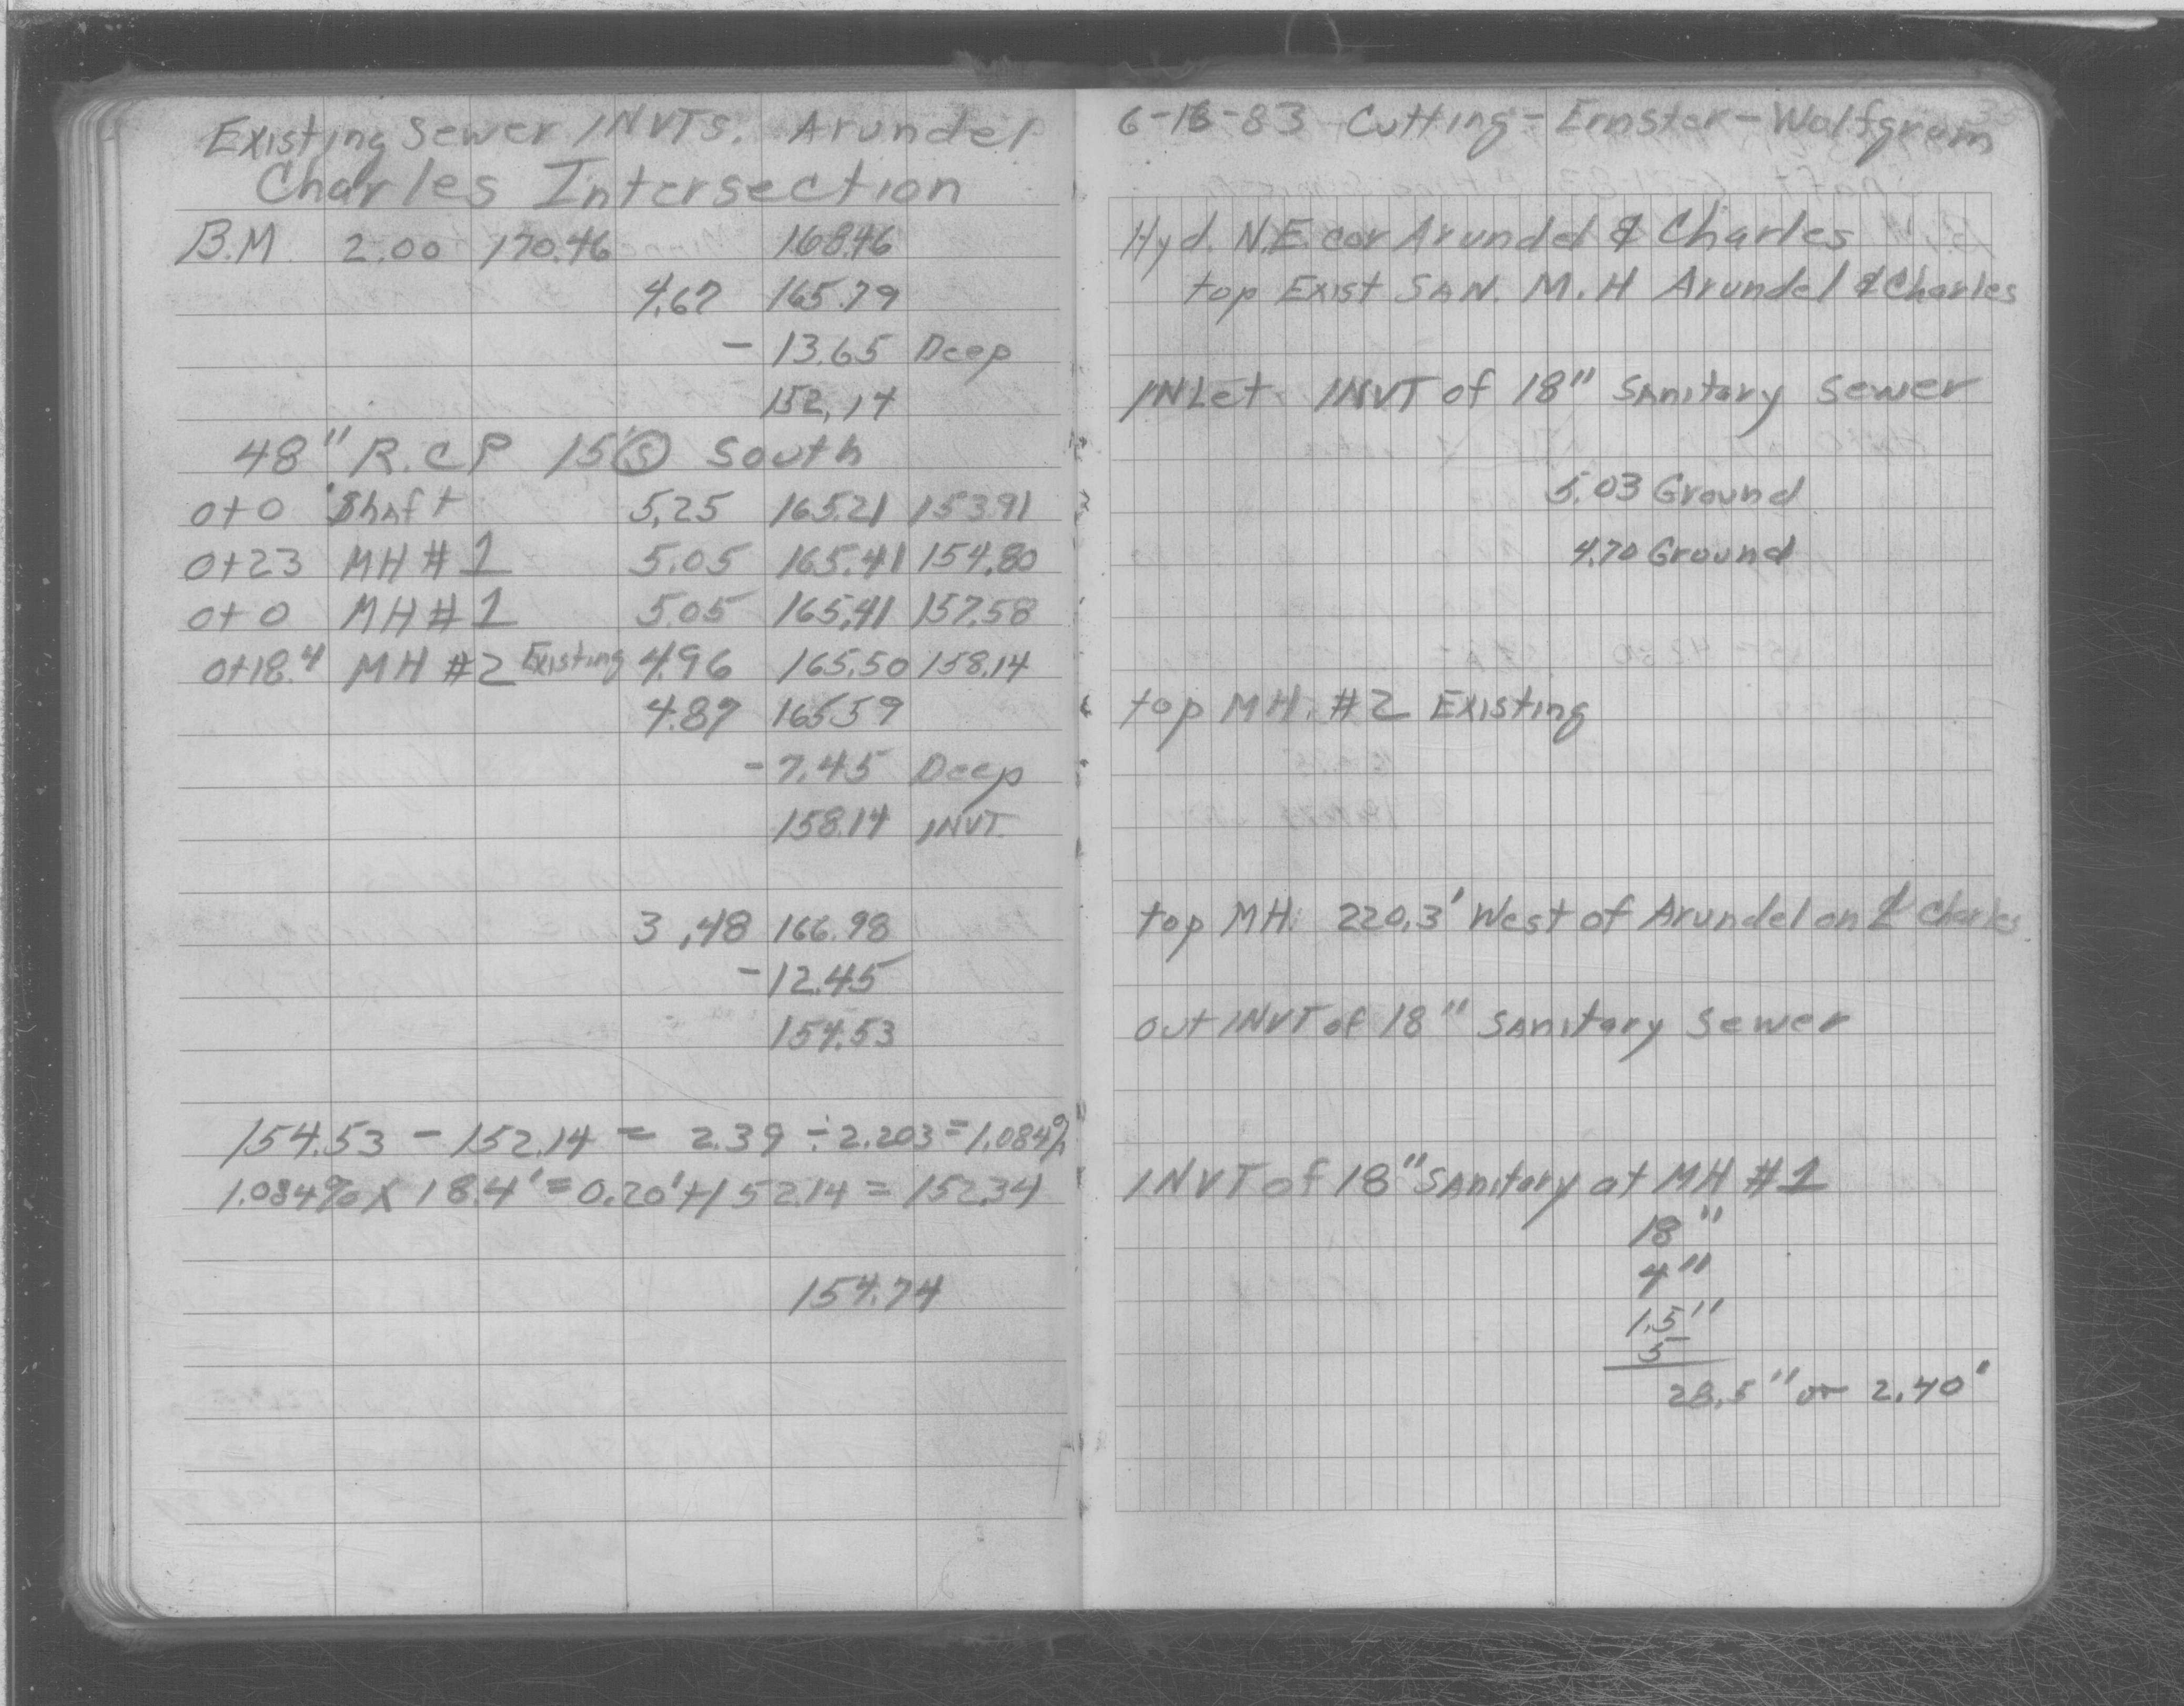 Existing Sewer INVTS. Arundel
Charles Intersection
B.M. 2.00 170.46 168.46
4.67 165.79
- 13.65 Deep
152.14
48" R.C.P 15' Ⓢ South
0+0 Shaft 5.25 165.21 153.91
0+23 MH #1 5.05 165.41 154.80
0+0 MH #1 5.05 165.41 157.58
0+18.4 MH #2 Existing 4.96 165.50 158.14
4.87 165.59
- 7.45 Deep
158.14 INVT
3.48 166.98
- 12.45
154.53
154.53 - 152.14 = 2.39 ÷ 2.203 = 1.084%
1.084% x 18.4' = 0.20' + 152.14 = 152.34
154.74
6-16-83 Cutting - Ernster - Wolfgram
Hyd. N.E. cor Arundel & Charles
top Exist SAN. M.H Arundel & Charles
INLet INVT of 18" Sanitary Sewer
5.03 Ground
4.70 Ground
top MH. #2 Existing
top MH. 220.3' West of Arundel on ℄ Charles
out INVT of 18" Sanitary Sewer
INVT of 18" Sanitary at MH #1
18"
4"
1.5"
5
28.5" or 2.40'